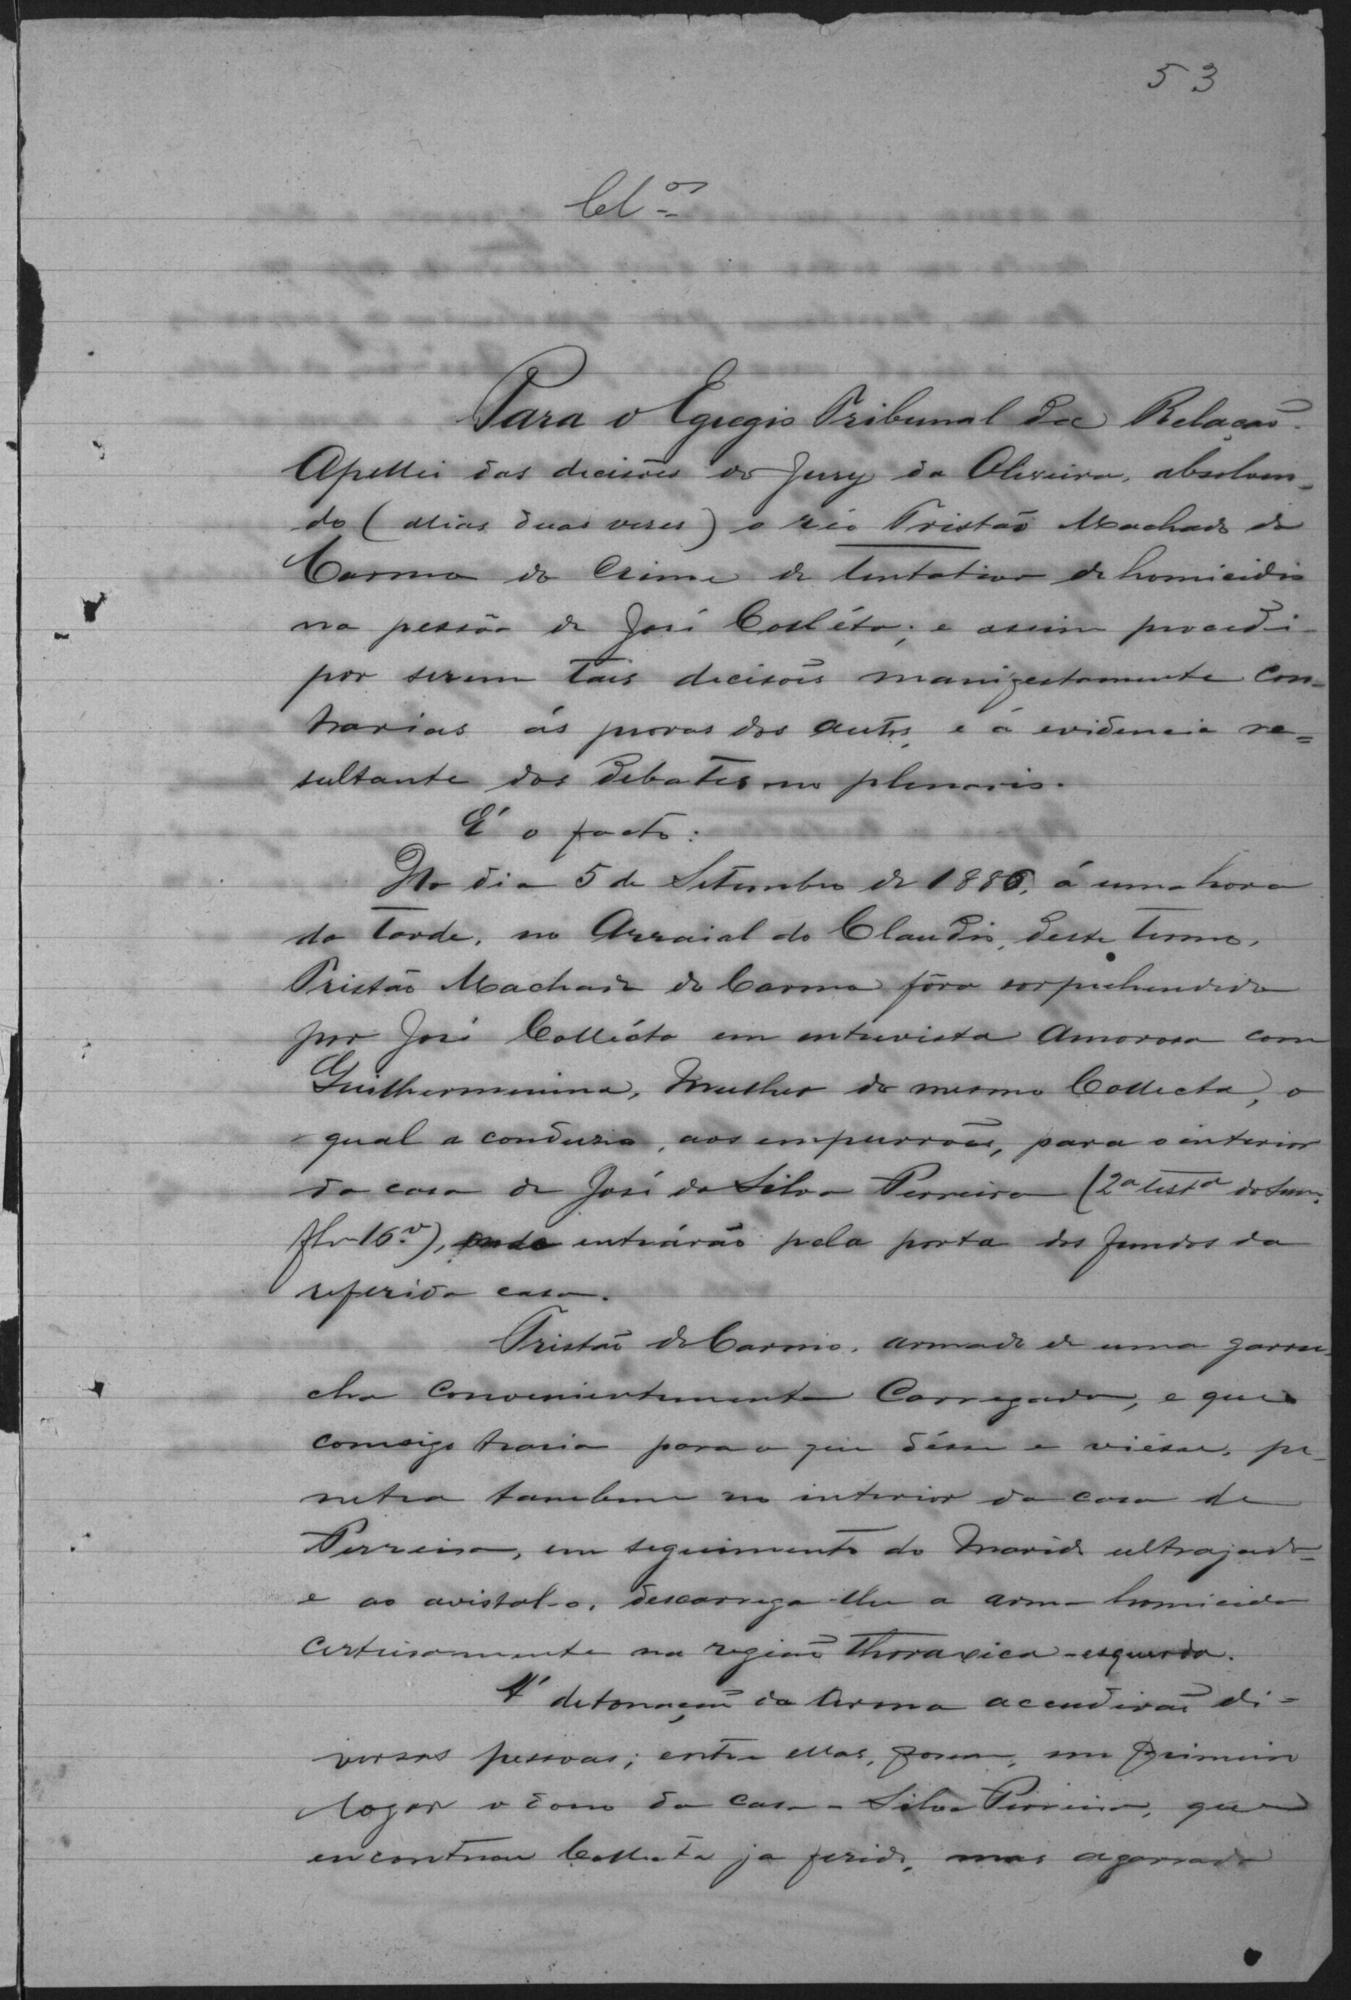 53
Cl.os
Para o Egregio Tribunal da Relação.
Apellei das decisões do Jury da Oliveira, absolven-
do (alias duas veses) o réo Tristão Machado do
Carmo do crime de tentativa de homicidio
na pessôa de José Collécta; e assim procedi
por serem tais decisões manifestamente con-
trarias ás provas dos autos, e á evidencia re=
sultante dos debates no plenario.
É o facto:
No dia 5 de Setembro de 1886, á uma hora
da tarde, no Arraial do Claudio, deste termo,
Tristão Machado do Carmo fôra sorprehendido
por José Collécta em entrevista amorosa com
Guilhermina, mulher do mesmo Collecta, o
qual a conduzio, aos empurrões, para o interior
da casa de José da Silva Perreira (2a testa do Sum.
fls 16.v), onde entrárão pela porta dos fundos da
referida casa.
Tristão do Carmo, armado de uma garru-
cha convenientemente carregada, e que
comsigo trasia para o que désse e viésse, pe-
netra tambem no interior da casa de
Perreira, em seguimento do marido ultrajado=
e ao avistal-o, descarrega-lhe a arma homicida
certeiramente na região thoraxica-esquerda.
Á detonação da arma accudirão di=
versas pessoas; entre ellas, porem, em primeiro
logar o dono da casa - Silva Perreira, que
encontrou Collecta ja ferido, mas agarrado